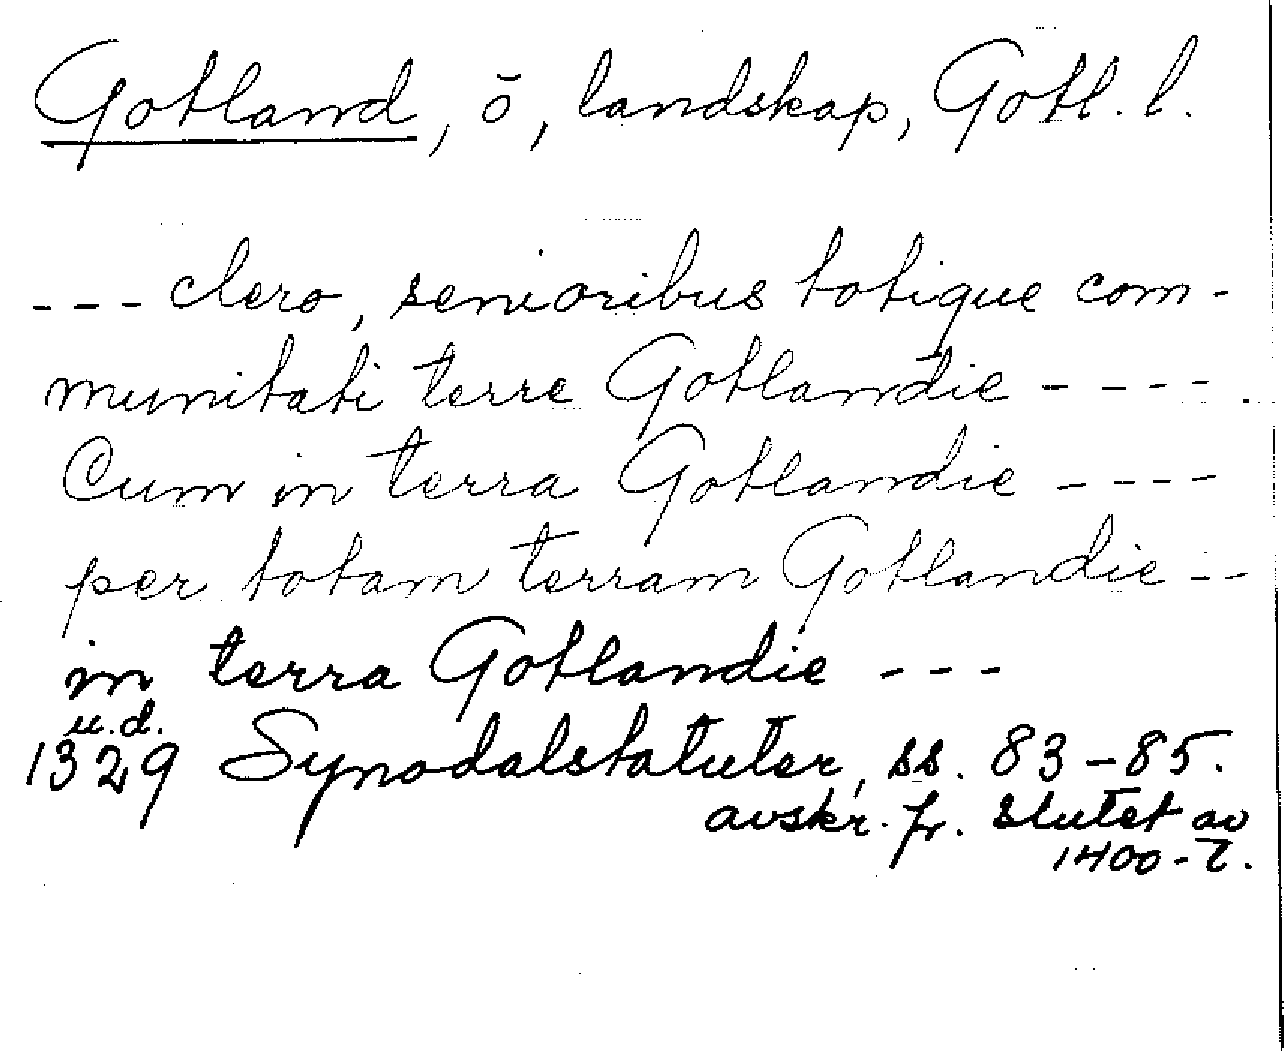 Gotland, ö, landskap, Gotl. l.
--- clero, senioribus totique com-
munitati terre Gotlandie ----
Cum in terra Gotlandie ----
per totam terram Gotlandie --
in terra Gotlandie ---
u.d.
1329 Synodalstatuter, ss. 83-85.
avskr. fr. slutet av
1400-t.